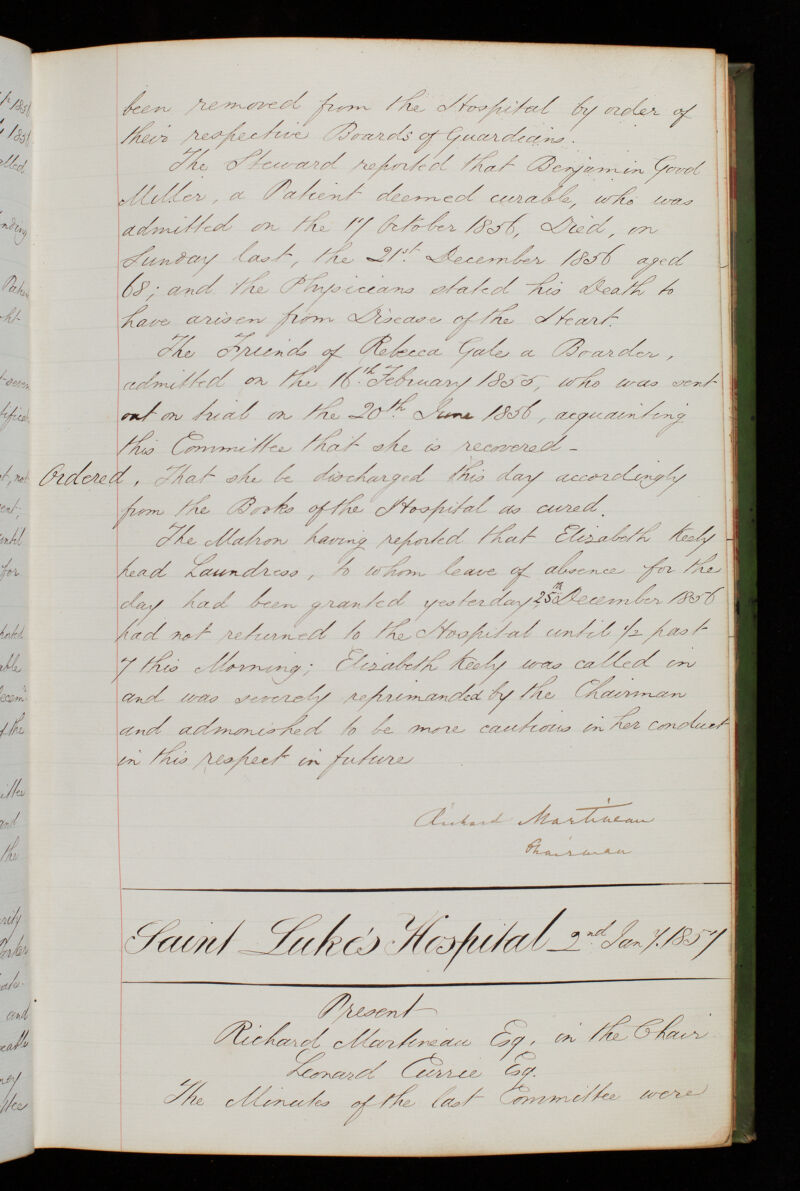 been removed from the Hospital by order of
their respective Boards of Guardians.
The Steward reported that Benjamin Good
Miller, a Patient deemed curable, who was
admitted on the 17 October 1856, Died, on
Sunday last, the 21st December 1856 aged
68; and the Physicians stated his Death to
have arisen from Disease of the Heart.
The Friends of Rebecca Gale a Boarder,
admitted on the 16th February 1855, who was sent
out on trial on the 20th June 1856, acquainting
this Committee that she is recovered –
Ordered, That she be discharged this day accordingly
from the Books of the Hospital as cured.
The Matron having reported that Elizabeth Keely
head Laundress, to whom leave of absence for the
day had been granted yesterday 25th December 1856
had not returned to the Hospital until 1/2 past
7 this Morning; Elizabeth Keely was called in
and was severely reprimanded by the Chairman
and admonished to be more cautious in her conduct
in this respect in future
Richard Martineau
Chairman
Saint Luke's Hospital 2nd Jany. 1857
Present
Richard Martineau Esq. in the Chair
Leonard Currie Esq.
The Minutes of the last Committee were